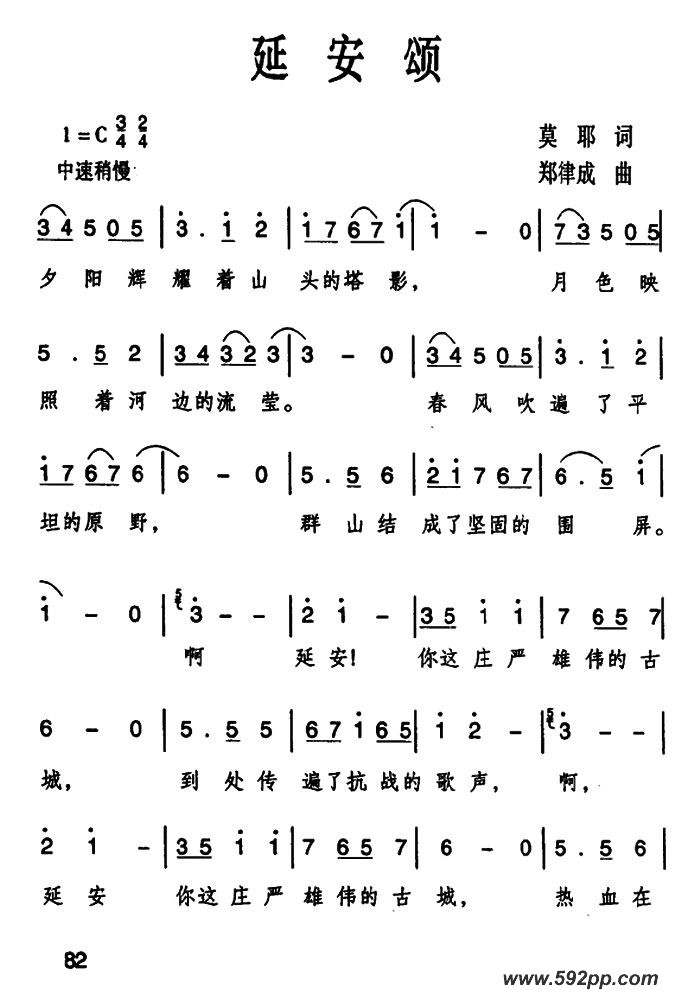 延安颂
1=C 3/4 2/4
莫耶 词
中速稍慢
郑律成 曲
3 4 5 0 5 | 3 . 1 2 | 1 7 6 7 1 | 1 - 0 | 7 3 5 0 5
夕阳辉耀着山头的塔影， 月色映
5 . 5 2 | 3 4 3 2 3 | 3 - 0 | 3 4 5 0 5 | 3 . 1 2
照着河边的流莹。 春风吹遍了平
1 7 6 7 6 | 6 - 0 | 5 . 5 6 | 2 1 7 6 7 | 6 . 5 1
坦的原野， 群山结成了坚固的围屏。
1 - 0 | 5 3 - - | 2 1 - | 3 5 1 1 | 7 6 5 7
啊 延安！ 你这庄严雄伟的古
6 - 0 | 5 . 5 5 | 6 7 1 6 5 | 1 2 - | 5 3 - -
城， 到处传遍了抗战的歌声， 啊，
2 1 - | 3 5 1 1 | 7 6 5 7 | 6 - 0 | 5 . 5 6
延安 你这庄严雄伟的古城， 热血在
82
www.592pp.com